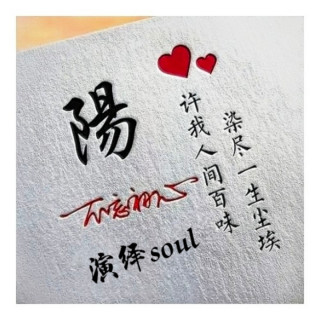 陽
不忘初心
演绎soul
许我人间百味
染尽一生尘埃